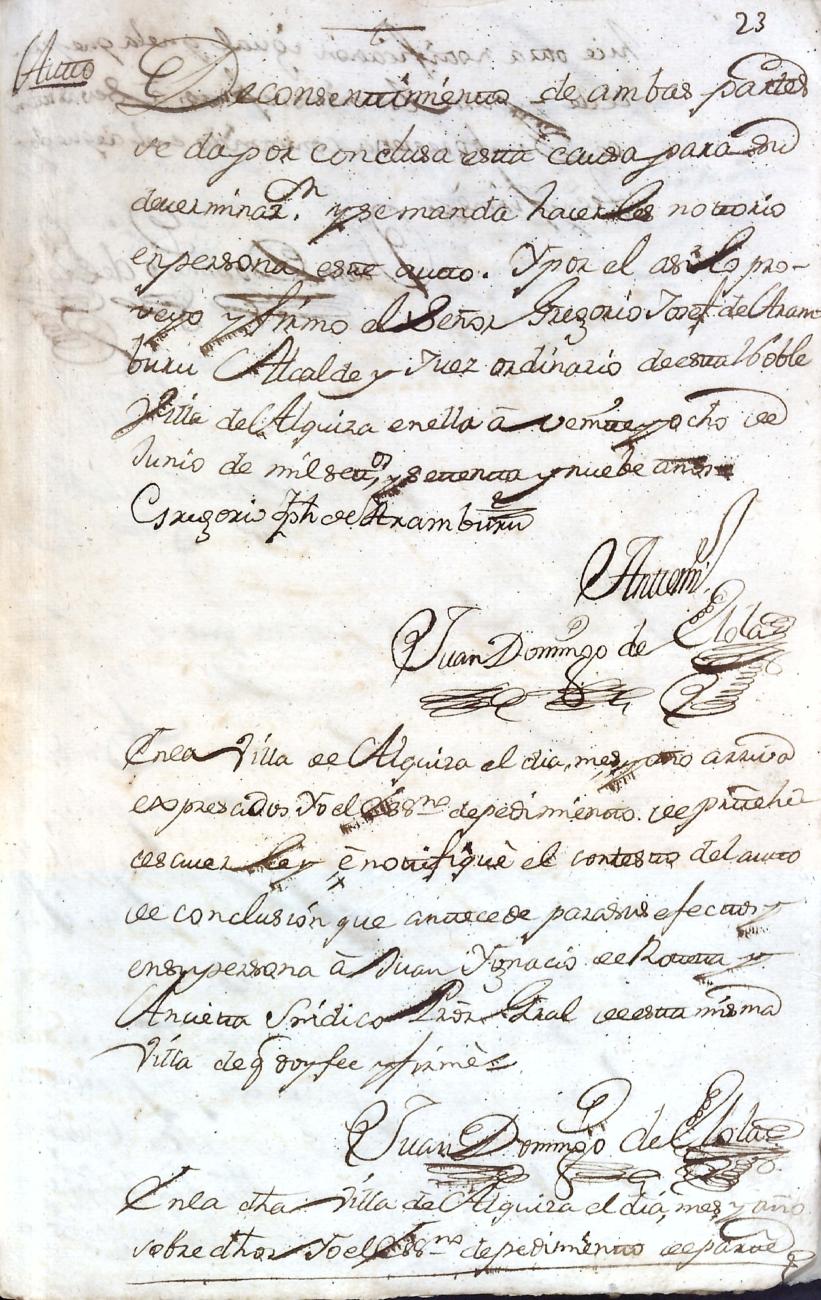 23
Autto
De consenttimientto de ambas partes
se da por conclusa estta causa para su
determinaz.n y se manda hacerles nottorio
en persona estte autto. Y por el assi lo pro-
veyo y firmo el Señor Gregorio Josef de Aram
buru Alcalde y Juez ordinario de estta Noble
Villa de Alquiza en ella à veinte y ocho de
Junio de mil settos y settentta y nuebe años
Gregorio Jph de Aramburu
Antemi
Juan Domingo de Elola
En la Villa de Alquiza el dia, mes y año arriva
expresados Yo el Essno de pedimientto de
ley è nottifiquè el contestto del autto
de conclusión que anttecede para sus efecttos
en su persona à Juan Ygnacio de Rotetta y
Ancietta Sindico Pror Gral de estta misma
Villa de q doy fee y firmè
Juan Domingo de Elola
En la dha Villa de Alquiza el dia, mes y año
sobre dhos Yo el Essno de pedimientto de partte